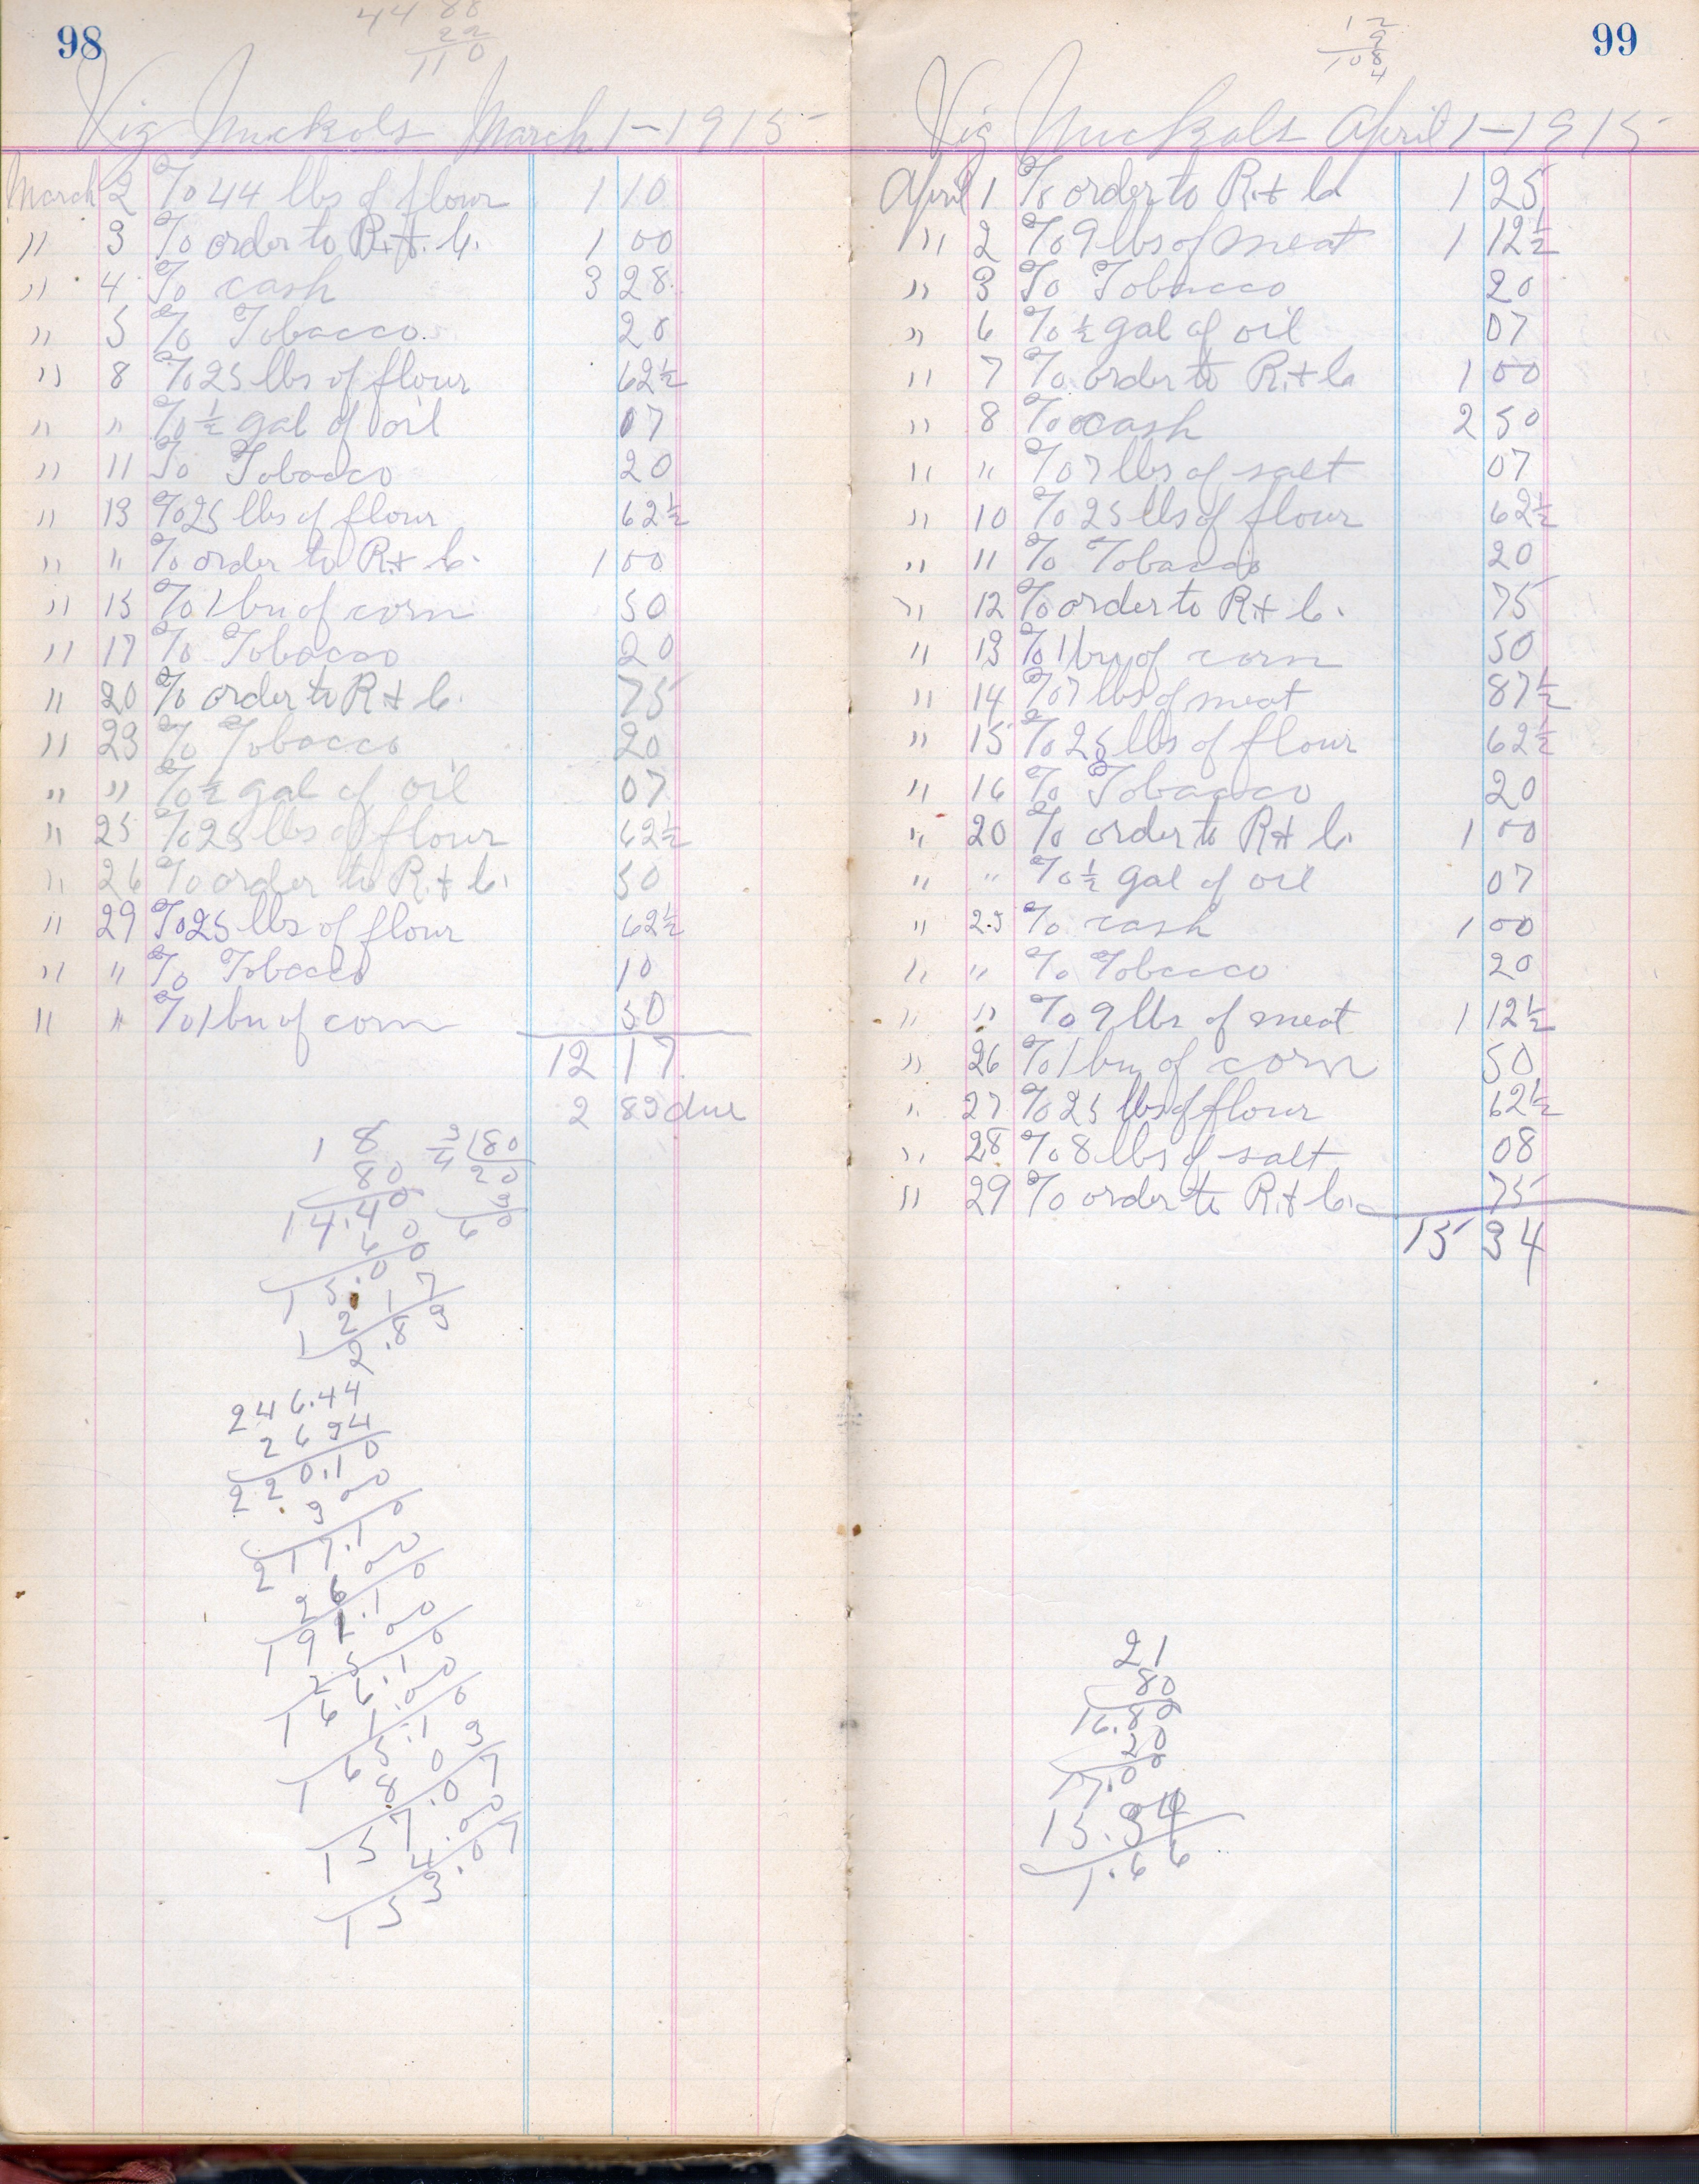 98
44 88
22
11 0
Vig Nuckols March 1-1915
March 2 To 44 lbs of flour 1 10
" 3 To order to R. & C. 1 00
" 4 To cash 3 28
" 5 To Tobacco 20
" 8 To 25 lbs of flour 62½
" " To ½ gal of oil 07
" 11 To Tobacco 20
" 13 To 25 lbs of flour 62½
" " To order to R & C. 1 00
" 15 To 1 bu of corn 50
" 17 To Tobacco 20
" 20 To order to R & C. 75
" 23 To Tobacco 20
" " To ½ gal of oil 07
" 25 To 25 lbs of flour 62½
" 26 To order to R & C. 50
" 29 To 25 lbs of flour 62½
" " To Tobacco 10
" " To 1 bu of corn 50
12 17
2 83 due
18
80
14.40
60
15.00
12 17
2.83
3/4 180
20
3
60
246.44
26 34
220.10
3 00
217.10
26 00
191.10
25 00
166.10
1.00
165.10
8 03
157.07
4.00
153.07
99
12
9
108
4
Vig Nuckols April 1-1915
April 1 To order to R & C 1 25
" 2 To 9 lbs of meat 1 12½
" 3 To Tobacco 20
" 6 To ½ gal of oil 07
" 7 To order to R. & C 1 00
" 8 To cash 2 50
" " To 7 lbs of salt 07
" 10 To 25 lbs of flour 62½
" 11 To Tobacco 20
" 12 To order to R & C. 75
" 13 To 1 bu of corn 50
" 14 To 7 lbs of meat 87½
" 15 To 25 lbs of flour 62½
" 16 To Tobacco 20
" 20 To order to R & C. 1 00
" " To ½ gal of oil 07
" 23 To cash 1 00
" " To Tobacco 20
" " To 9 lbs of meat 1 12½
" 26 To 1 bu of corn 50
" 27 To 25 lbs of flour 62½
" 28 To 8 lbs of salt 08
" 29 To order to R. & C. 75
15 34
21
80
16.80
20
17.00
15.34
1.66